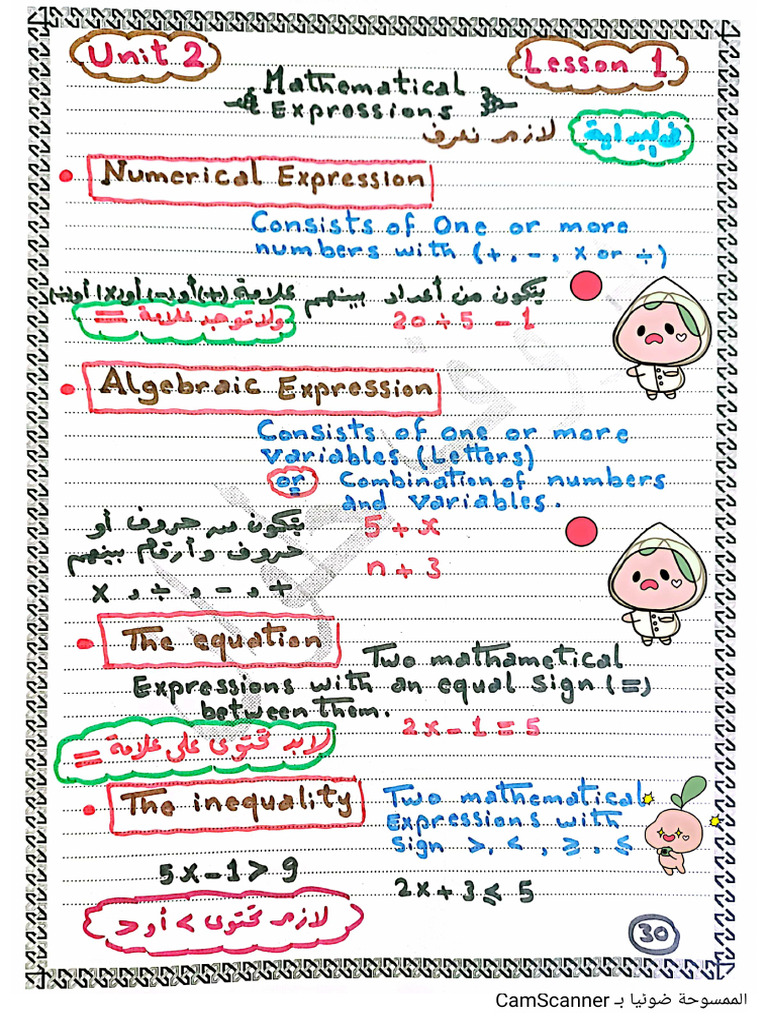 Unit 2
Lesson 1
Mathematical
Expressions
في البداية لازم نعرف
Numerical Expression
Consists of One or more
numbers with (+, -, x or ÷)
يتكون من أعداد بينهم علامة (+) أو (-) أو (x) أو (÷)
ولا توجد علامة =
20 ÷ 5 - 1
Algebraic Expression
Consists of one or more
variables (Letters)
or Combination of numbers
and variables.
يتكون من حروف أو
حروف وأرقام بينهم
+ , - , ÷ , x
5 + x
n + 3
The equation
Two mathametical
Expressions with an equal Sign (=)
between them.
2x - 1 = 5
لابد تحتوى على علامة =
The inequality
Two mathematical
Expressions with
Sign >, <, ≥, ≤
5x - 1 > 9
2x + 3 ≤ 5
لازم تحتوى > أو <
30
الممسوحة ضوئيا بـ CamScanner